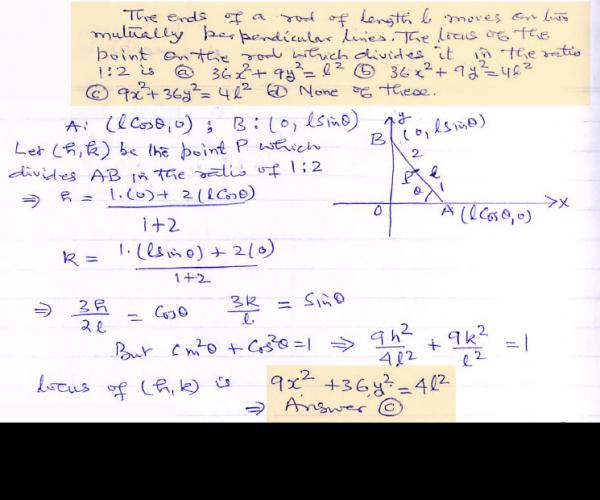 The ends of a rod of length l moves on two
mutually perpendicular lines. The locus of the
point on the rod which divides it in the ratio
1:2 is ⓐ 36x²+9y²=l² ⓑ 36x²+9y²=4l²
ⓒ 9x²+36y²=4l² ⓓ None of these.
A: (lcosθ,0) ; B: (0, lsinθ)
Let (h,k) be the point P which
divides AB in the ratio of 1:2
⇒ h = (1.(0)+2(lcosθ))/(1+2)
k = (1.(lsinθ)+2(0))/(1+2)
⇒ 3h/2l = cosθ 3k/l = sinθ
But sin²θ+cos²θ=1 ⇒ 9h²/4l² + 9k²/l² = 1
locus of (h,k) is 9x²+36y²=4l²
⇒ Answer ⓒ
y
B (0, lsinθ)
2
P l
θ 1
O A X
(lcosθ,0)